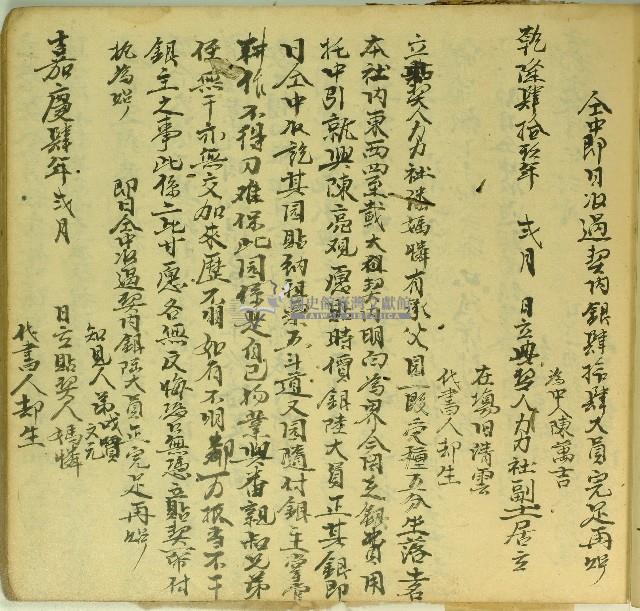 仝中即日收過契內銀肆拾肆大員完足再炤
為中人陳萬吉
乾隆肆拾玖年 弍月 日立典契人力力社副土居立
在場旧淸雲
代書人却生
立貼契人力力社洪媽憐有承父園一段受種五分坐落土名
本社內東西四至載大租契明白為界今因乏銀費用
托中引就與陳亮观愿出時價銀陸大員正其銀即
日仝中收訖其園貼納租粟五斗道又園隨付銀主掌管
耕作不得刁难保此園係是自己物業與番親叔兄弟
侄無干亦無交加來歷不明如有不明力抵当不干
銀主之事此係二比甘愿各無反悔恐口無憑立貼契一帋付
執為炤
即日仝中收過契內銀陸大員正完足再炤
知見人弟戊賢
文元
嘉慶肆年弍月 日立貼契人媽憐
代書人却生
國史館臺灣文獻館
TAIWAN HISTORICA